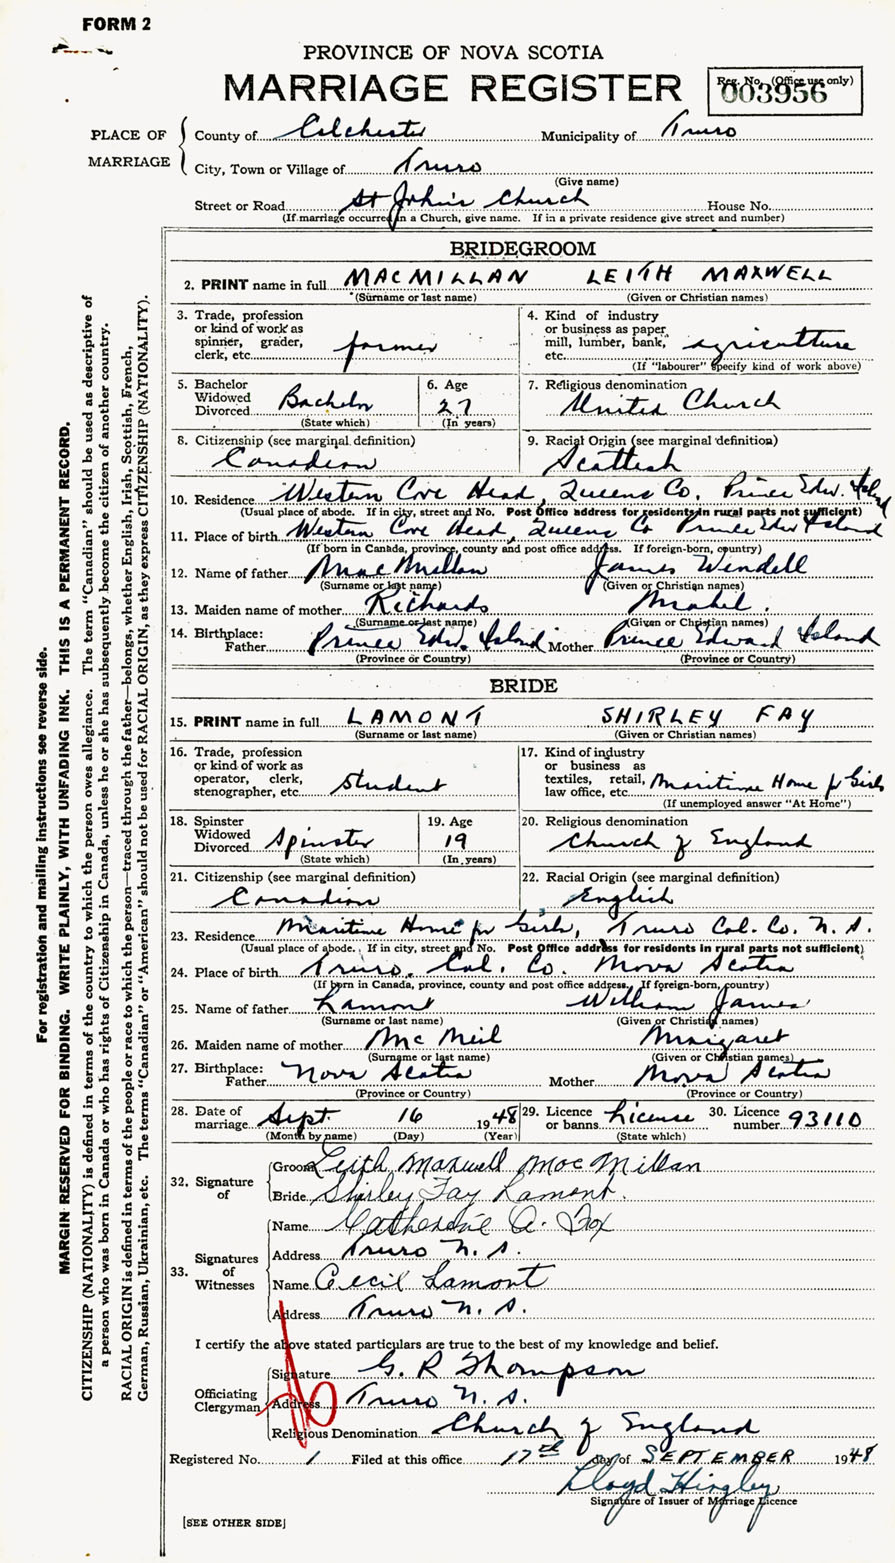 FORM 2
PROVINCE OF NOVA SCOTIA
MARRIAGE REGISTER
Reg. No. (Office use only)
003956
PLACE OF MARRIAGE
County of Colchester Municipality of Truro
City, Town or Village of Truro
(Give name)
Street or Road St John's Church House No.
(If marriage occurred in a Church, give name. If in a private residence give street and number)
BRIDEGROOM
2. PRINT name in full MACMILLAN LEITH MAXWELL
(Surname or last name) (Given or Christian names)
3. Trade, profession or kind of work as spinner, grader, clerk, etc. farmer
4. Kind of industry or business as paper mill, lumber, bank, etc. agriculture
(If "labourer" specify kind of work above)
5. Bachelor Widowed Divorced Bachelor
(State which)
6. Age 27
(In years)
7. Religious denomination United Church
8. Citizenship (see marginal definition) Canadian
9. Racial Origin (see marginal definition) Scottish
10. Residence Western Cove Head, Queens Co. Prince Edw. Island
(Usual place of abode. If in city, street and No. Post Office address for residents in rural parts not sufficient)
11. Place of birth Western Cove Head, Queens Co Prince Edw Island
(If born in Canada, province, county and post office address. If foreign-born, country)
12. Name of father MacMillan James Wendell
(Surname or last name) (Given or Christian names)
13. Maiden name of mother Richards Mabel.
(Surname or last name) (Given or Christian names)
14. Birthplace: Father Prince Edw. Island Mother Prince Edward Island
(Province or Country) (Province or Country)
BRIDE
15. PRINT name in full LAMONT SHIRLEY FAY
(Surname or last name) (Given or Christian names)
16. Trade, profession or kind of work as operator, clerk, stenographer, etc. Student
17. Kind of industry or business as textiles, retail, law office, etc. Maritime Home for Girls
(If unemployed answer "At Home")
18. Spinster Widowed Divorced Spinster
(State which)
19. Age 19
(In years)
20. Religious denomination Church of England
21. Citizenship (see marginal definition) Canadian
22. Racial Origin (see marginal definition) English
23. Residence Maritime Home for Girls, Truro Col. Co. N. S.
(Usual place of abode. If in city, street and No. Post Office address for residents in rural parts not sufficient)
24. Place of birth Truro. Col. Co. Nova Scotia
(If born in Canada, province, county and post office address. If foreign-born, country)
25. Name of father Lamont William James
(Surname or last name) (Given or Christian names)
26. Maiden name of mother McNeil Margaret
(Surname or last name) (Given or Christian names)
27. Birthplace: Father Nova Scotia Mother Nova Scotia
(Province or Country) (Province or Country)
28. Date of marriage Sept. 16 1948
(Month by name) (Day) (Year)
29. Licence or banns License
(State which)
30. Licence number 93110
32. Signature of
Groom Leith Maxwell MacMillan
Bride Shirley Fay Lamont.
33. Signatures of Witnesses
Name Catherine A. Fox
Address Truro N. S.
Name Cecil Lamont
Address Truro N. S.
I certify the above stated particulars are true to the best of my knowledge and belief.
Officiating Clergyman
Signature G. R Thompson
Address Truro N. S.
Religious Denomination Church of England
Registered No. 1 Filed at this office 17th day of SEPTEMBER 1948
Lloyd Hingley
Signature of Issuer of Marriage Licence
[SEE OTHER SIDE]
For registration and mailing instructions see reverse side.
MARGIN RESERVED FOR BINDING. WRITE PLAINLY, WITH UNFADING INK. THIS IS A PERMANENT RECORD.
CITIZENSHIP (NATIONALITY) is defined in terms of the country to which the person owes allegiance. The term "Canadian" should be used as descriptive of
a person who was born in Canada or who has rights of Citizenship in Canada, unless he or she has subsequently become the citizen of another country.
RACIAL ORIGIN is defined in terms of the people or race to which the person—traced through the father—belongs, whether English, Irish, Scottish, French,
German, Russian, Ukrainian, etc. The terms "Canadian" or "American" should not be used for RACIAL ORIGIN, as they express CITIZENSHIP (NATIONALITY).